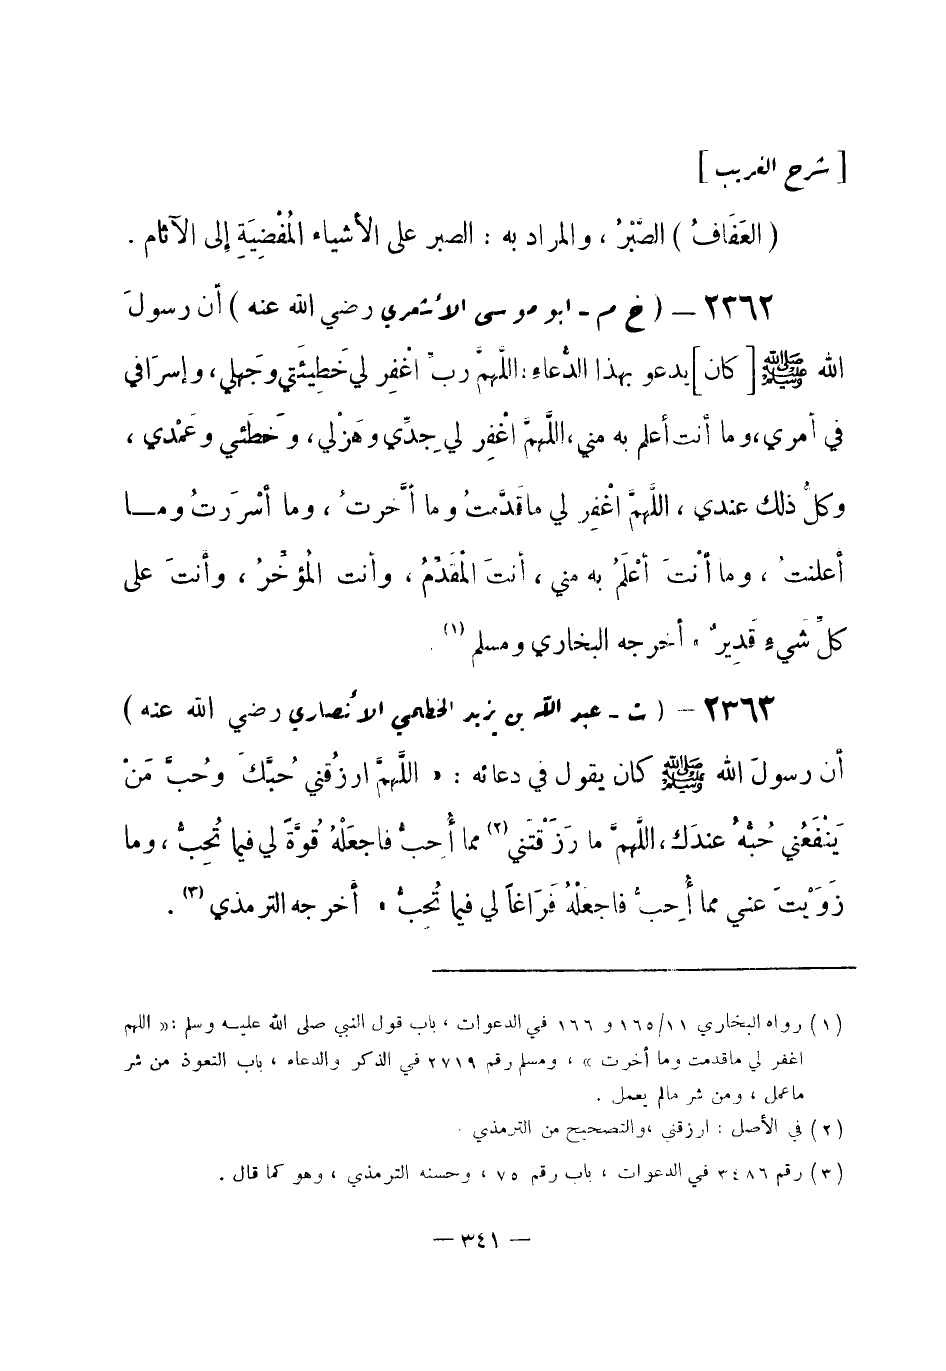 [ شرح الغريب ]
( العَفَافُ ) الصَّبْرُ ، والمراد به : الصبر على الأشياء المُفْضِيَةِ إلى الآثام .
٢٣٦٢ — ( خ م - ابو موسى الأشعري رضي الله عنه ) أن رسولَ
الله ﷺ [ كان ] يدعو بهذا الدُّعاء : اللَّهمَّ ربِّ اغْفِر لي خَطِيئَتي وجَهلي ، وإسرَافي
في أمري ، وما أنت أعلم به مني ، اللَّهمَّ اغْفِر لي جِدِّي وهَزْلي ، وخَطَئي وعَمْدي ،
وكلُّ ذلك عندي ، اللَّهمَّ اغْفِر لي ما قدَّمتُ وما أَخَّرتُ ، وما أسْرَرتُ ومــا
أعلنتُ ، وما أنْتَ أعْلَمُ به مني ، أنتَ المُقَدِّمُ ، وأنت المُؤخِّرُ ، وأنتَ على
كلِّ شَيءٍ قَدِيرٌ » أخرجه البخاري ومسلم (١) .
٢٣٦٣ — ( ت - عبد الله بن يزيد الخطمي الأنصاري رضي الله عنه )
أن رسولَ الله ﷺ كان يقول في دعائه : « اللَّهمَّ ارزُقني حُبَّكَ وحُبَّ مَنْ
يَنْفَعُني حُبُّهُ عندَك ، اللَّهمَّ ما رَزَقْتَني (٢) مما أُحِبُّ فاجعَلْهُ قُوَّةً لي فيما تُحِبُّ ، وما
زَوَيْتَ عني مما أُحِبُّ فاجعَلْهُ فَرَاغاً لي فيما تُحِبُّ » أخرجه الترمذي (٣) .
(١) رواه البخاري ١٦٥/١١ و ١٦٦ في الدعوات ، باب قول النبي صلى الله عليه وسلم : « اللهم
اغفر لي ماقدمت وما أخرت » ، ومسلم رقم ٢٧١٩ في الذكر والدعاء ، باب التعوذ من شر
ماعمل ، ومن شر مالم يعمل .
(٢) في الأصل : ارزقني ، والتصحيح من الترمذي .
(٣) رقم ٣٤٨٦ في الدعوات ، باب رقم ٧٥ ، وحسنه الترمذي ، وهو كما قال .
— ٣٤١ —